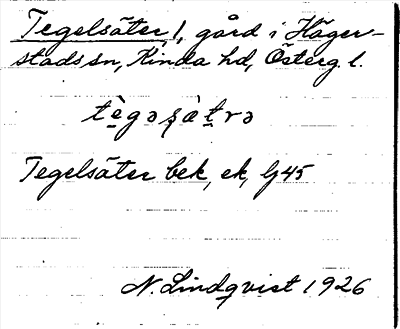 Tegelsäter 1, gård i Häger-
stads sn, Kinda hd, Österg. l.
tègəsàtrə
Tegelsäter bek, ek, G45
N. Lindqvist 1926